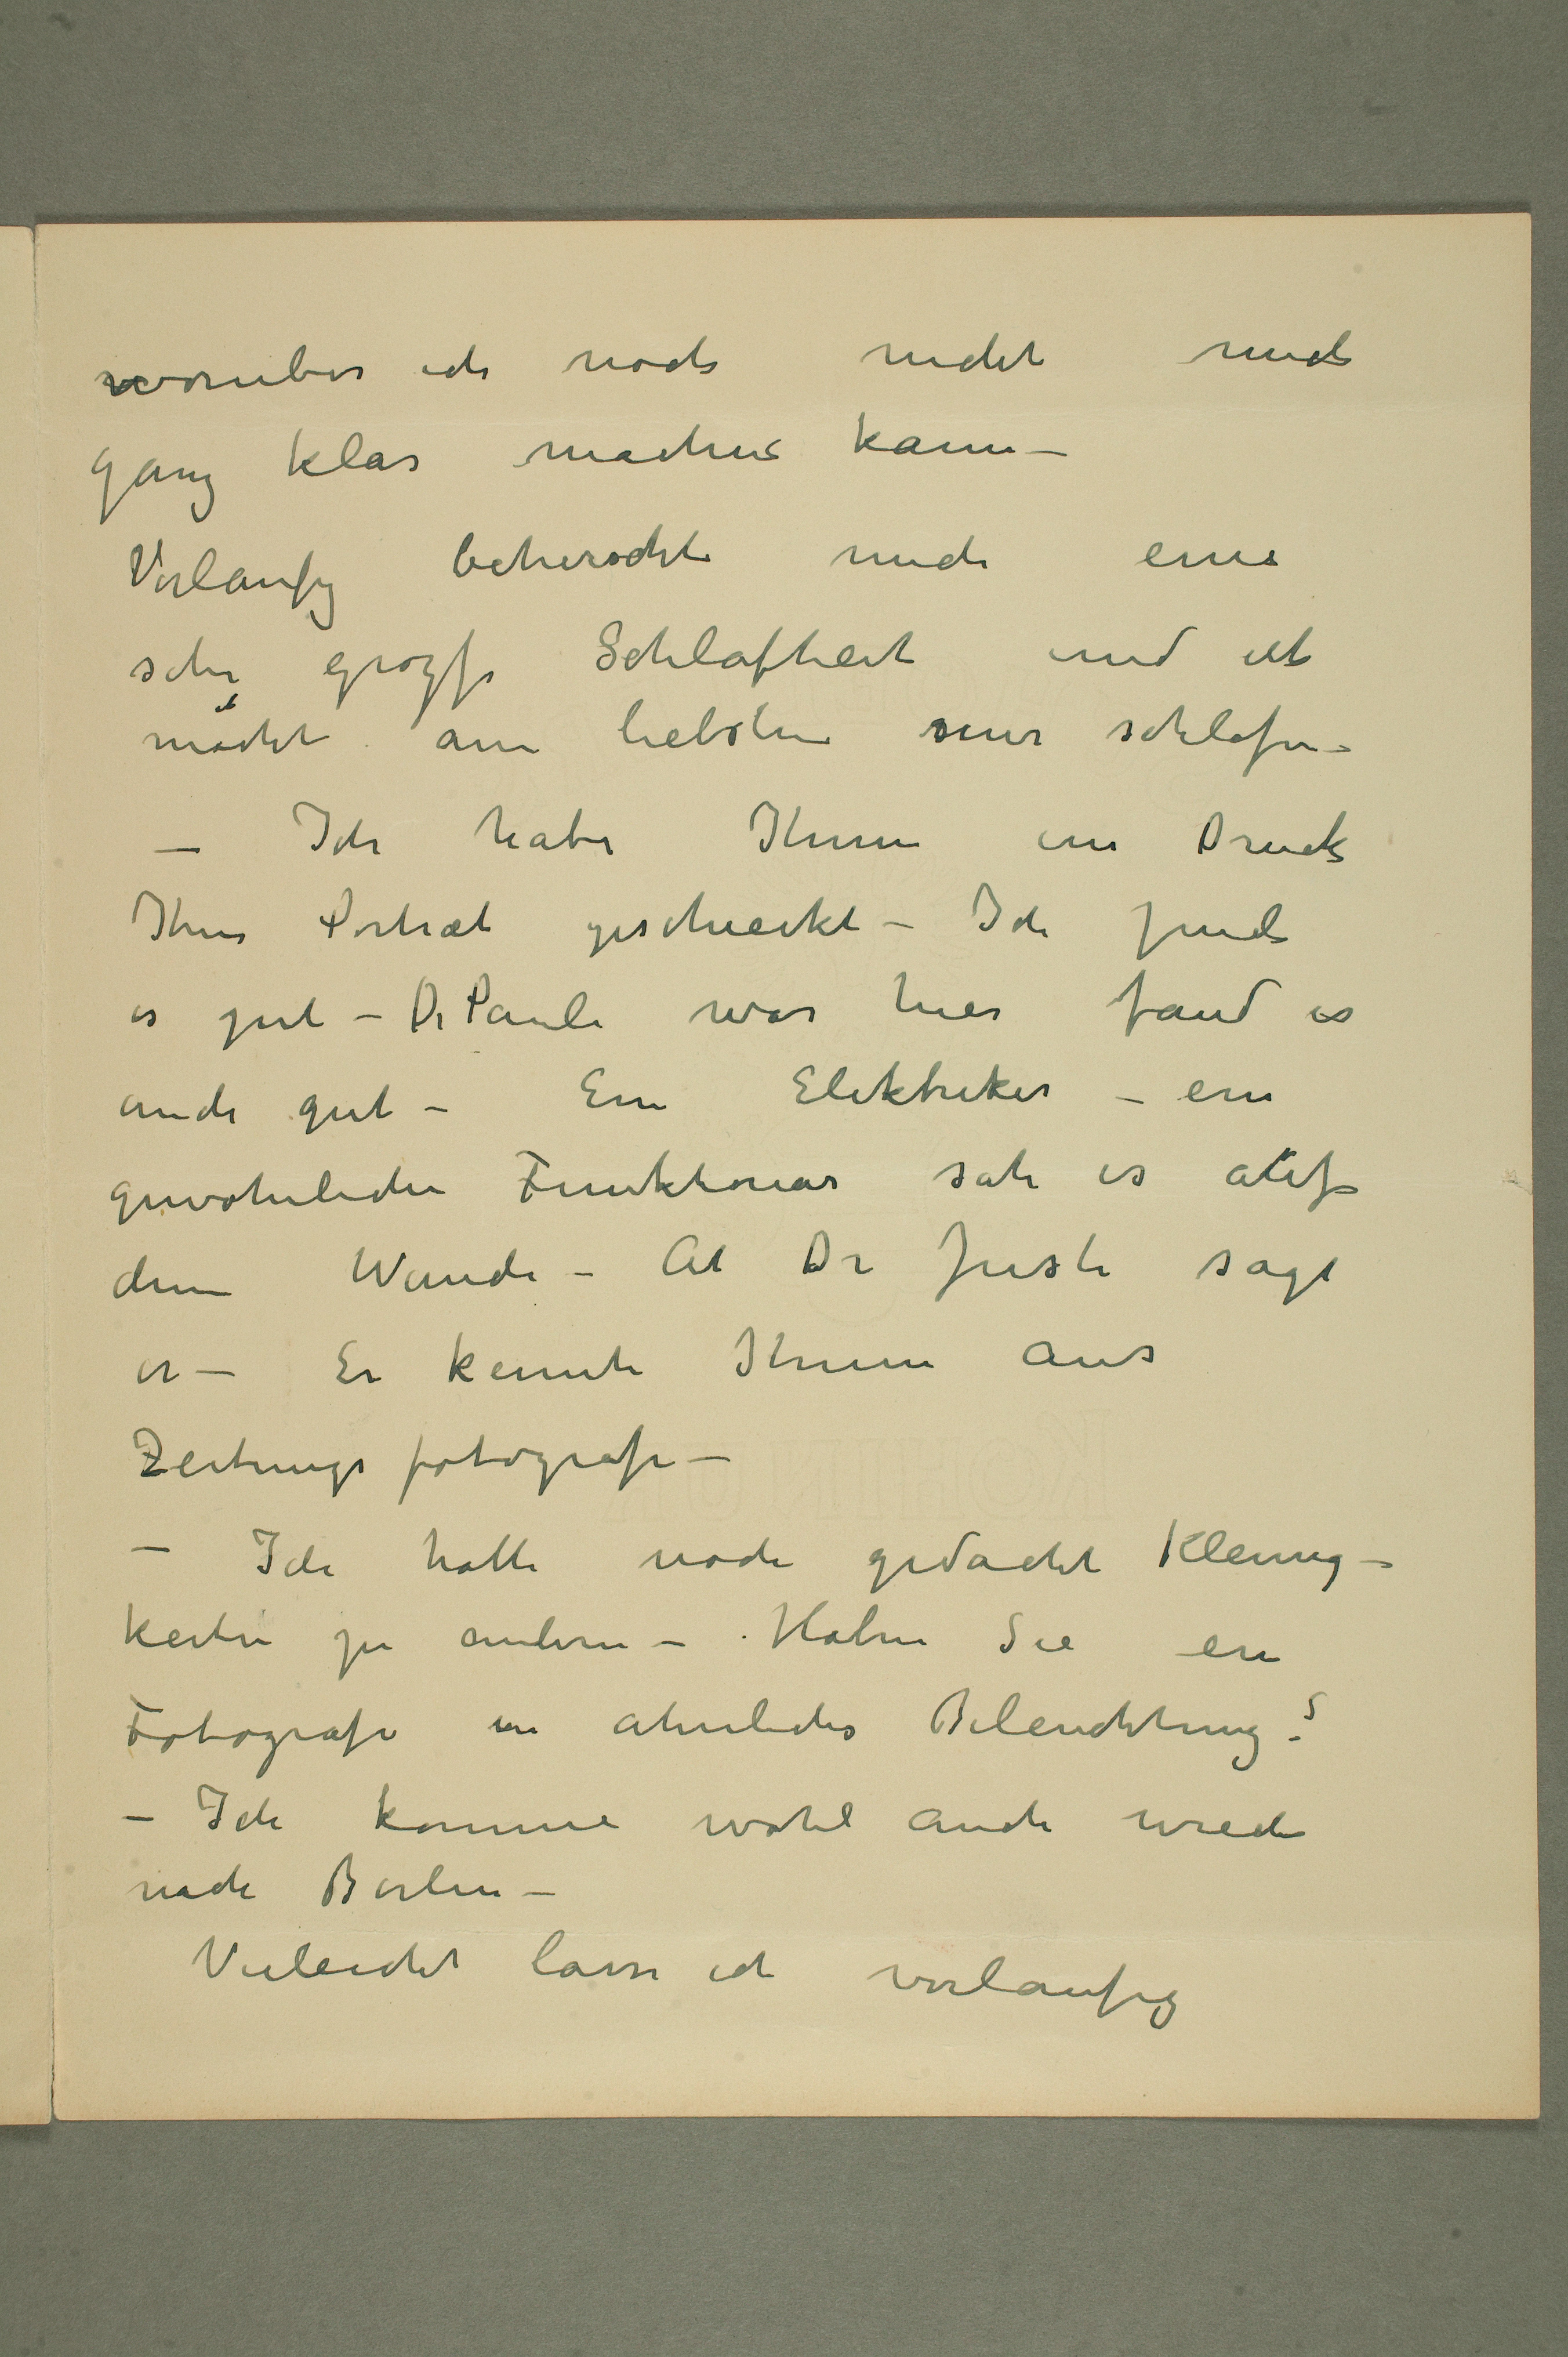 worüber ich noch nicht mich
ganz klar machen kann –
Vorlaufig beherscht mich eine
sehr grozse Schlafheit und ich
möcht am liebsten nur schlafen –
– Ich habe Ihnen ein Druck
Ihres Portræt geschieckt – Ich find
es gut – Dr Pauli war hier fand es
auch gut – Ein Elektriker – ein
gewöhnlicher Funktionär sah es auf
dem Wande – At Dr Justi sagt
er – Er kennte Ihnen aus
Zeitungsfotografi –
– Ich hatte noch gedacht Kleinig-
keiten zu andern – Haben Sie ein
Fotografi in ahnlicher Beleuchtung?
– Ich komme wohl auch wieder
nach Berlin –
Vieleicht lasse ich vorlaufig